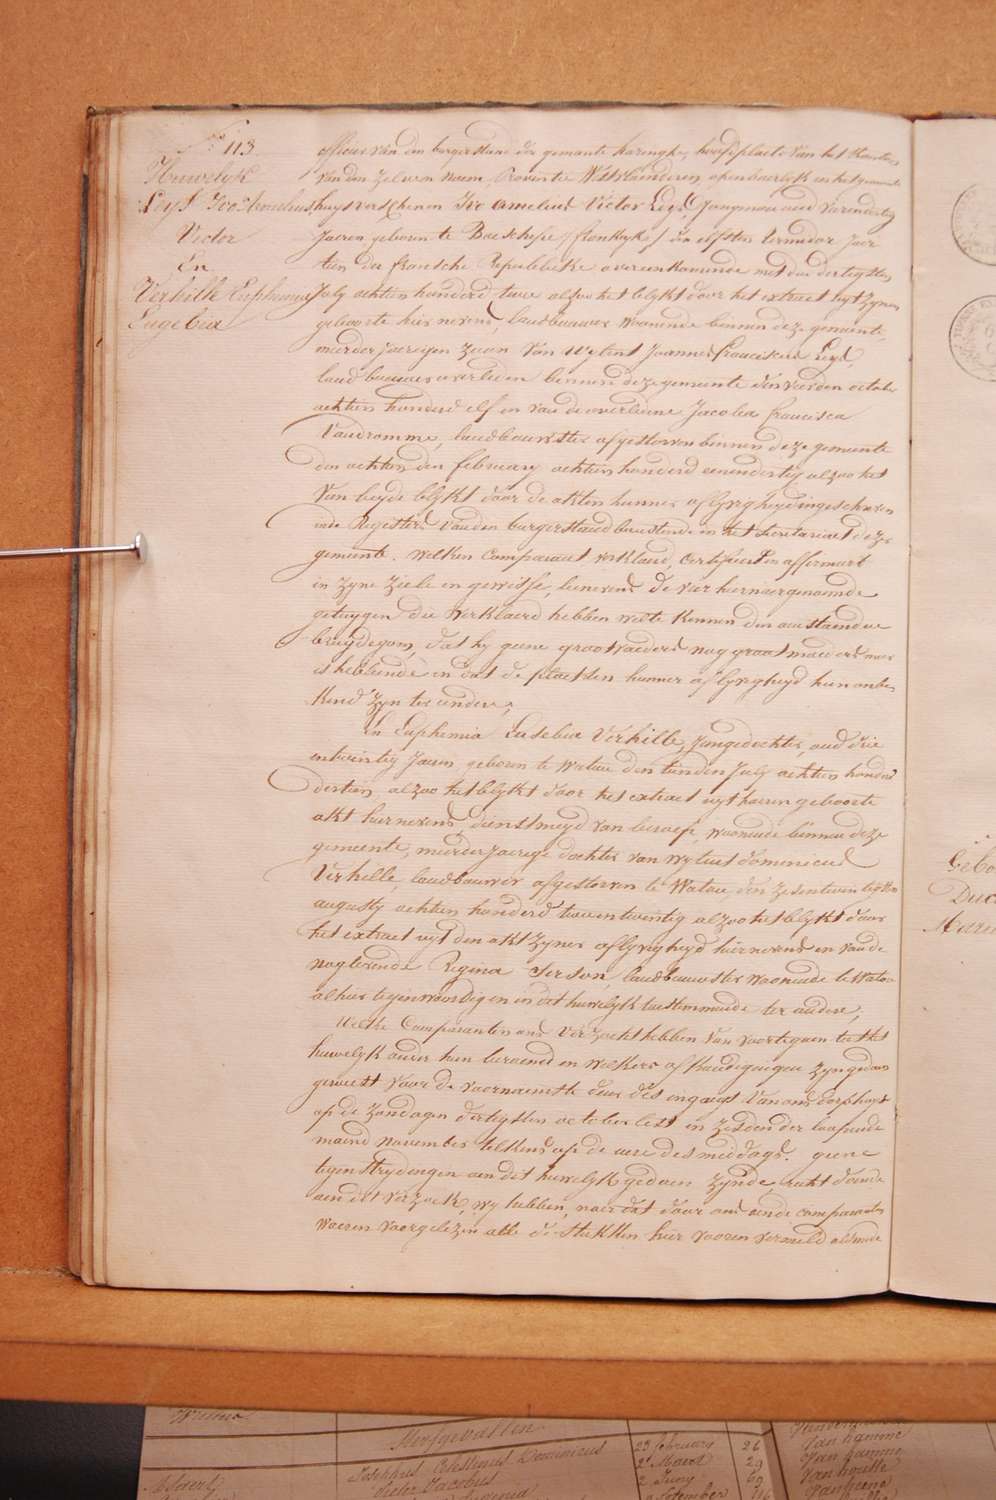 N° 113.
Huwelyk
Leys Ivo Amelius
Victor
En
Verhille Euphemia
Eugebia
officier van den burgerstand der gemeente haringhe, hoofdplaets van het Kanton
van den zelven naem, Provintie Westvlaenderen, openbaerlyk in het gemeente
huys verschenen Ivo Amelius Victor Leys, Jongman oud
Jaeren geboren te Boeschepe /frankryk/ den elfsten Termidor Jaer
tien der fransche Republieke overeenkomende met den dertigsten
July achtien honderd twee alzoo het blykt door het extract uyt zynen
geboorte hier nevens, landbouwer woonende binnen deze gemeente,
meerderjaerigen zoon van wylent Joannes franciscus Leys,
landbouwer overleden binnen deze gemeente den vierden october
achtien honderd elf en van de overledene Jacoba francisca
Vandromme, landbouwster afgestorven binnen deze gemeente
den achtsten february achtien honderd eenendertig alzoo het
van beyde blykt door de akten hunner aflyvigheyd ingeschreven
inde Registers van den burgerstand berustende in het secretariaet dezer
gemeente. welken comparant verklaerd, certifieert en affirmeert
in zyne ziele en gewisse, benevens de vier hiernaergenoemde
getuygen die verklaerd hebben wel te kennen den aenstaenden
bruydegom, dat hy geene grootvaeders nog grootmoeders meer
is hebbende en dat de plaetsen hunner aflyvigheyd hun onbe-
kend zyn ter eendere;
En Euphemia Eusebia Verhille, Jongedochter oud drie
entwintig Jaeren, geboren te Watou den tienden July achtien honderd
dertien, alzoo het blykt door het extract uyt haeren geboorte
akt hiernevens, dienstmeyd van beroep, woonende binnen deze
gemeente, meerderjaerige dochter van wylent Dominicus
Verhille, landbouwer afgestorven te Watou, den zesentwintigsten
augusty achtien honderd tweeentwintig alzoo het blykt door
het extract uyt den akt zyner aflyvigheyd hiernevens en van de
nogtevende Regina Serson, landbouwster woonende te Watou
alhier tegenwoordig en in dit huwelyk toestemmende ter andere;
Welke Comparanten ons verzocht hebben van voortegaen tot het
huwelyk onder hun beraemd en welkers afkondigingen zyn gedaen
geweest voor de voornaemste deur des ingangs van ons dorphuys
op de zondagen dertigsten october lest en zesden der loopende
maend november telkens op de uere des middags. geene
tegenstrydingen aen dit huwelyk gedaen zynde, recht doende
aen dit verzoek, wy hebben, naer dat door ons aende comparanten
waeren voorgelezen alle de stukken hier vooren vermeld alsmede
Gebo
Duc
Mari
Sterfgevallen
Josephus Celestinus Dominicus
23 february
26
Pieter Jacobus
2 Maert
29
2 Juny
69
September
Van hamme
Van hamme
Van houtte